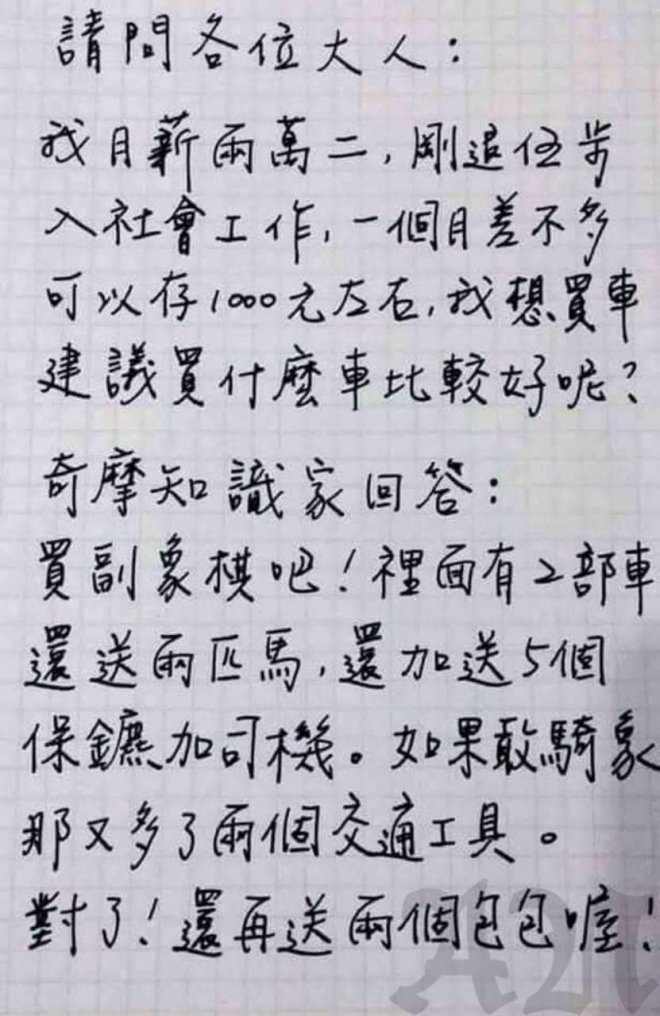 請問各位大人：
我月薪兩萬二，剛退伍步
入社會工作，一個月差不多
可以存1000元左右，我想買車
建議買什麼車比較好呢？
奇摩知識家回答：
買副象棋吧！裡面有2部車
還送兩匹馬，還加送5個
保鑣加司機。如果敢騎象
那又多了兩個交通工具。
對了！還再送兩個包包喔！